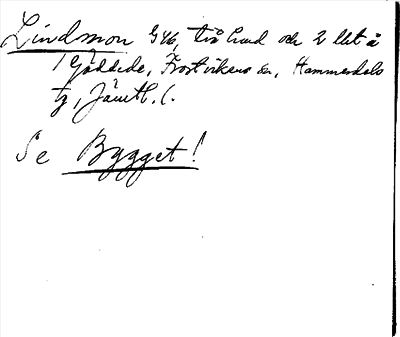 Lindmon G46, två lund och 2 llst å
1 Gäddede, Frostvikens sn, Hammerdals
tg, Jämtl. l.
Se Bygget!